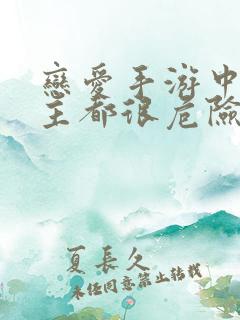 戀愛手游中
主都很危險
夏長久
未經同意禁止轉載